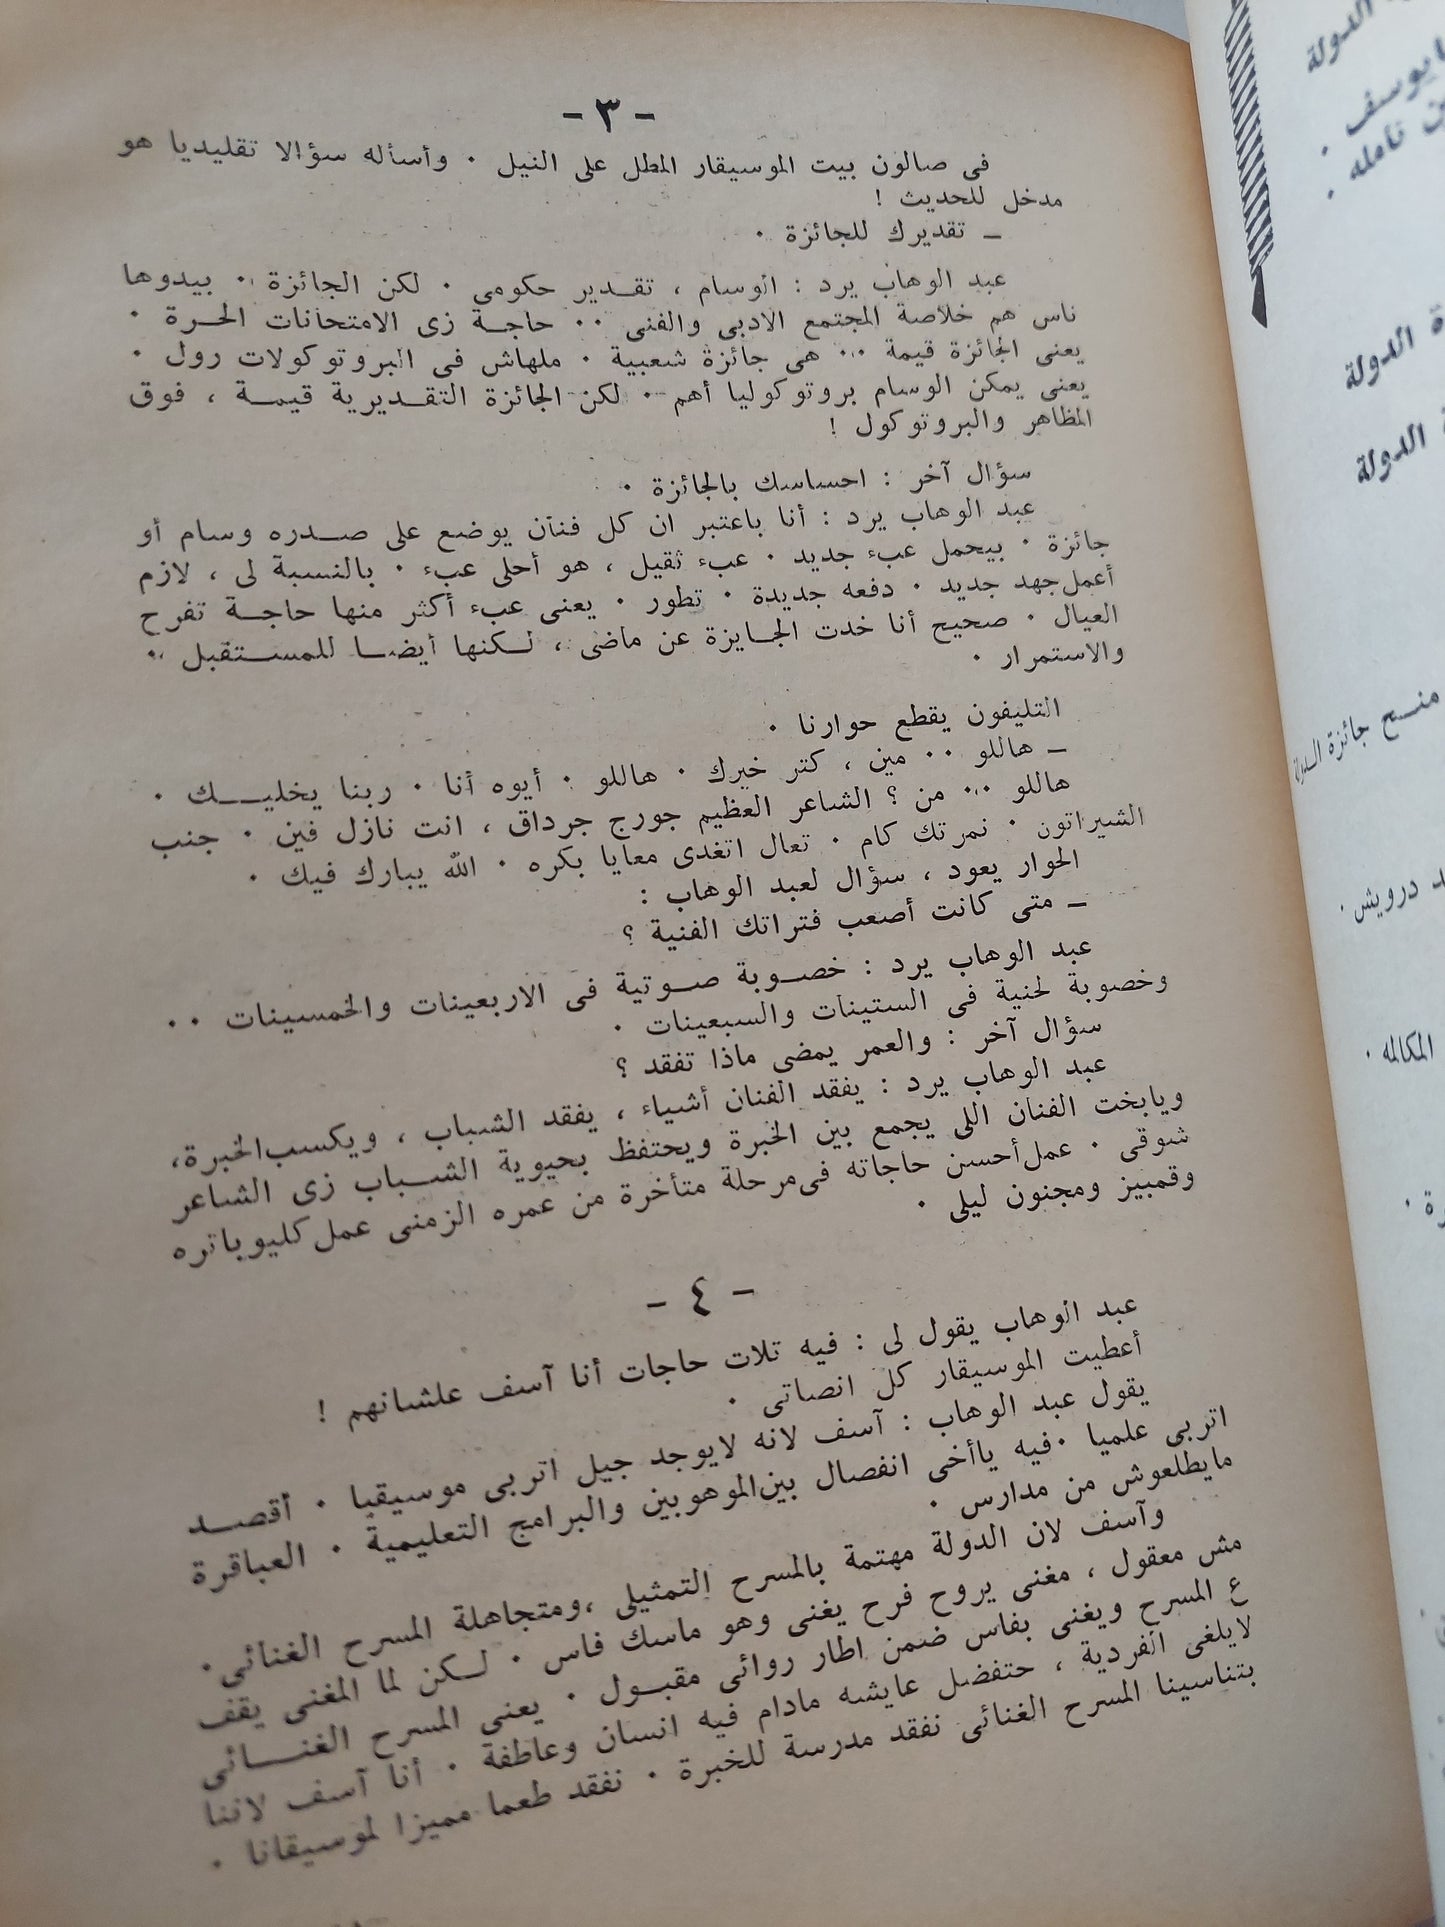 - ٣ -
فى صالون بيت الموسيقار المطل على النيل ٠ وأسأله سؤالا تقليديا هو
مدخل للحديث !
ــ تقديرك للجائزة ٠
عبد الوهاب يرد : الوسام ، تقـدير حكومي ٠ لكن الجائزة ٠٠ بيدوها
ناس هم خلاصة المجتمع الادبى والفنى ٠٠ حاجـة زى الامتحانات الحـرة ٠
يعنى الجائزة قيمة ٠٠ هى جائزة شعبية ٠ ملهاش فى البروتوكولات رول ٠
يعنى يمكن الوسام بروتوكوليا أهم ٠ لكن الجائزة التقـديرية قيمـة ، فوق
المظاهر والبروتوكول !
سؤال آخر : احساسك بالجائزة ٠
عبد الوهاب يرد : أنا باعتبر ان كل فنان يوضع على صـدره وسام أو
جائزة ٠ بيحمل عبء جديد ٠ عبء ثقيل ، هو أحلى عبء ٠ بالنسبة لى ، لازم
أعمل جهد جديد ٠ دفعه جديدة ٠ تطور ٠ يعنى عبء أكثر منها حاجـة تفرح
العيال ٠ صحيح أنا خدت الجـايزة عن ماضى ، لـكنها أيضـا للمسـتقبل ٠٠
والاستمرار ٠
التليفون يقطع حوارنا ٠
ــ هاللو ٠٠ مين ، كتر خيرك ٠ هاللو ٠ أيوه أنا ٠ ربنا يخليـــك ٠
هاللو ٠٠ من ؟ الشاعر العظيم جورج جرداق ، انت نازل فين ٠ جنب
الشيراتون ٠ نمرتك كام ٠ تعال اتغدى معايا بكره ٠ الله يبارك فيك ٠
الحوار يعود ، سؤال لعبد الوهاب :
ــ متى كانت أصعب فتراتك الفنية ؟
عبد الوهاب يرد : خصـوبة صـوتية فى الاربعينات والخمسينات ٠٠
وخصوبة لحنية فى الستينات والسبعينات ٠
سؤال آخر : والعمر يمضى ماذا تفقد ؟
عبد الوهاب يرد : يفقد الفنان أشياء ، يفقد الشباب ، ويكسب الخبرة،
ويابخت الفنان اللى يجمع بين الخبرة ويحتفظ بحيوية الشـباب زى الشاعر
شوقى ٠ عمل أحسن حاجاته فى مرحلة متأخرة من عمره الزمنى عمل كليوباتره
وقمبيز ومجنون ليلى ٠
- ٤ -
عبد الوهاب يقول لى : فيه تلات حاجات أنا آسف علشانهم !
أعطيت الموسيقار كل انصاتى ٠
يقول عبد الوهاب : آسف لانه لايوجد جيل اتربى موسيقيا ٠ أقصـد
اتربى علميا ٠ فيه ياأخى انفصال بين الموهوبين والبرامج التعليمية ٠ العباقرة
مايطلعوش من مدارس ٠
وآسف لان الدولة مهتمة بالمسرح التمثيلى ،ومتجاهلة المسرح الغنائى٠
مش معقول ، مغنى يروح فرح يغنى وهو ماسك فاس ٠ لـكن لما المغنى يقف
ع المسرح ويغنى بفاس ضمن اطار روائى مقبـول ٠ يعنى المسرح الغنــائى
لايلغى الفردية ، حتفضل عايشه مادام فيه انسان وعاطفة ٠ أنا آسف لاننا
بتناسينا المسرح الغنائى نفقد مدرسة للخبرة ٠ نفقد طعما مميزا لموسيقانا ٠
الدولة
يوسف ٠
الدولة
الدولة
منـح جائزة الدولة
درويش ٠
المكالمه ٠